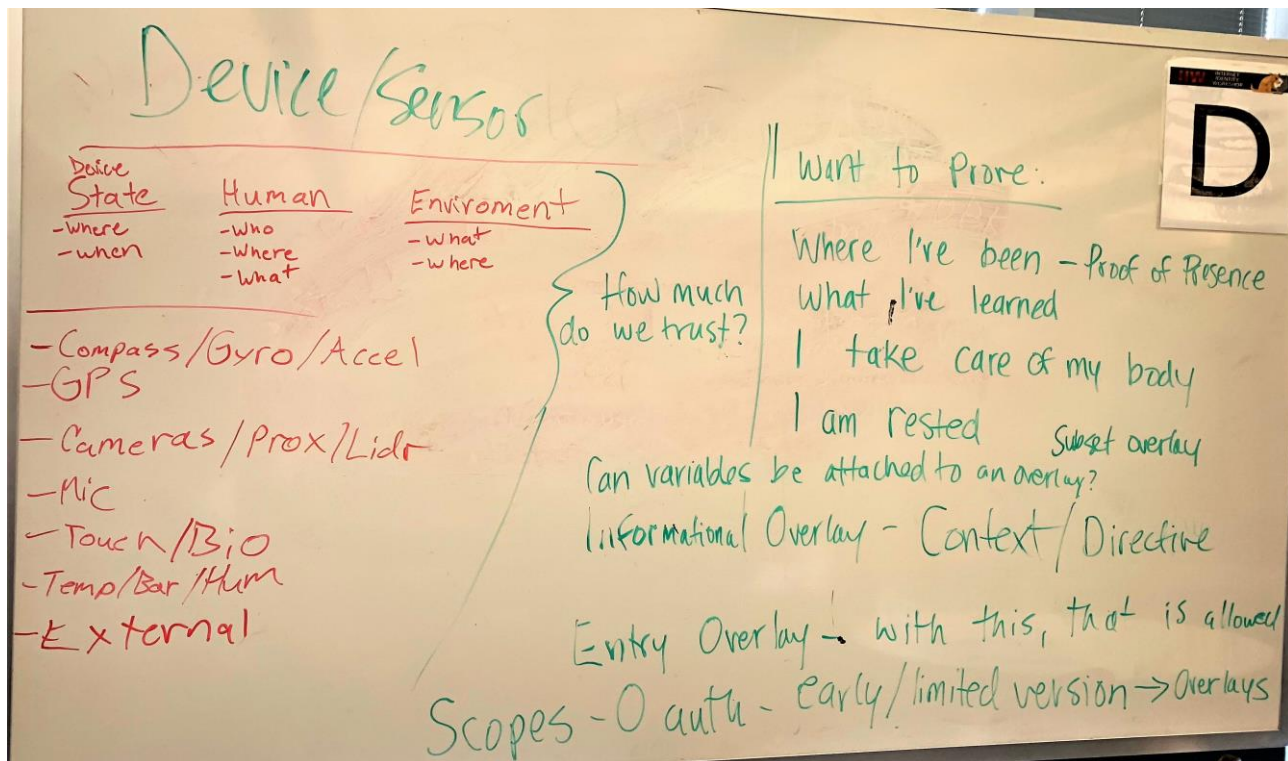 Device/Sensor
Device
State
-where
-when
Human
-who
-where
-what
Enviroment
-what
-where
-Compass/Gyro/Accel
-GPS
-Cameras/Prox/Lidr
-Mic
-Touch/Bio
-Temp/Bar/Hum
-External
How much
do we trust?
I want to Prove:
Where I've been - Proof of Presence
What I've learned
I take care of my body
I am rested
Subset overlay
Can variables be attached to an overlay?
Informational Overlay - Context/Directive
Entry Overlay - with this, that is allowed
Scopes - O auth - early/limited version → Overlays
INTERNET
IDENTITY
WORKSHOP
D